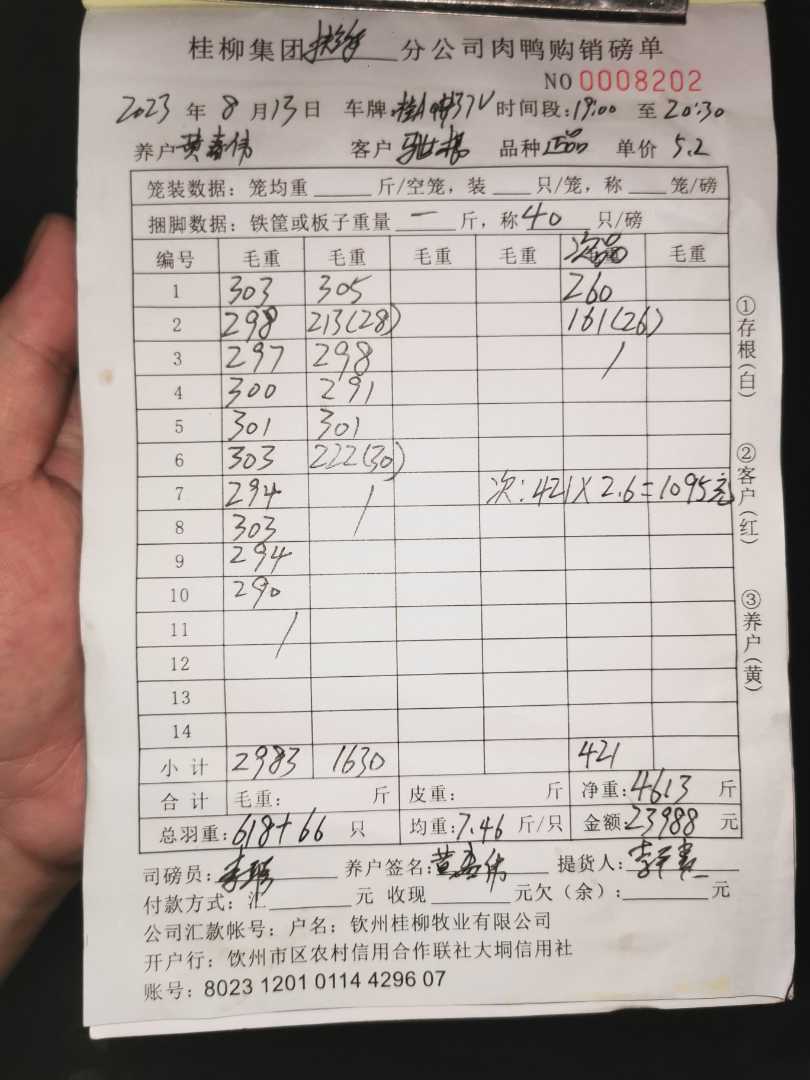 桂柳集团 分公司肉鸭购销磅单
NO 0008202
2023 年 8 月 13 日 车牌: 时间段: 19:00 至 20:30
养户 黄春伟 客户 品种 正品 单价 5.2
笼装数据: 笼均重 斤/空笼, 装 只/笼, 称 笼/磅
捆脚数据: 铁筐或板子重量 一 斤, 称 40 只/磅
编号 毛重 毛重 毛重 毛重 次品 毛重
1 303 305 260
2 298 213(28) 161(26)
3 297 298 /
4 300 291
5 301 301
6 303 222(30)
7 294 / 次: 421 × 2.6 = 1095元
8 303
9 294
10 290
11 /
12
13
14
小计 2983 1630 421
合计 毛重: 斤 皮重: 斤 净重: 4613 斤
总羽重: 618+66 只 均重: 7.46 斤/只 金额: 23988 元
司磅员: 养户签名: 黄春伟 提货人:
付款方式: 汇 元 收现 元欠(余): 元
公司汇款帐号: 户名: 钦州桂柳牧业有限公司
开户行: 钦州市区农村信用合作联社大垌信用社
账号: 8023 1201 0114 4296 07
①存根(白)
②客户(红)
③养户(黄)